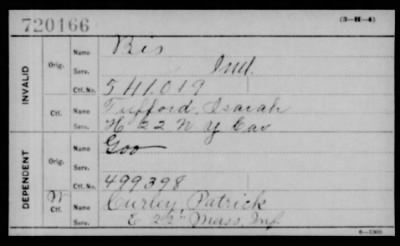 720166 (3-H-4)
INVALID
Orig. Name Ris
Serv. Ind.
Ctf. No. 541,019
Ctf. Name Tufford, Isaiah
Serv. H 22 N Y Cav
DEPENDENT
Orig. Name Goo
Serv.
Ctf. No. 499398
W Ctf. Name Curley, Patrick
Serv. E 22" Mass. Inf